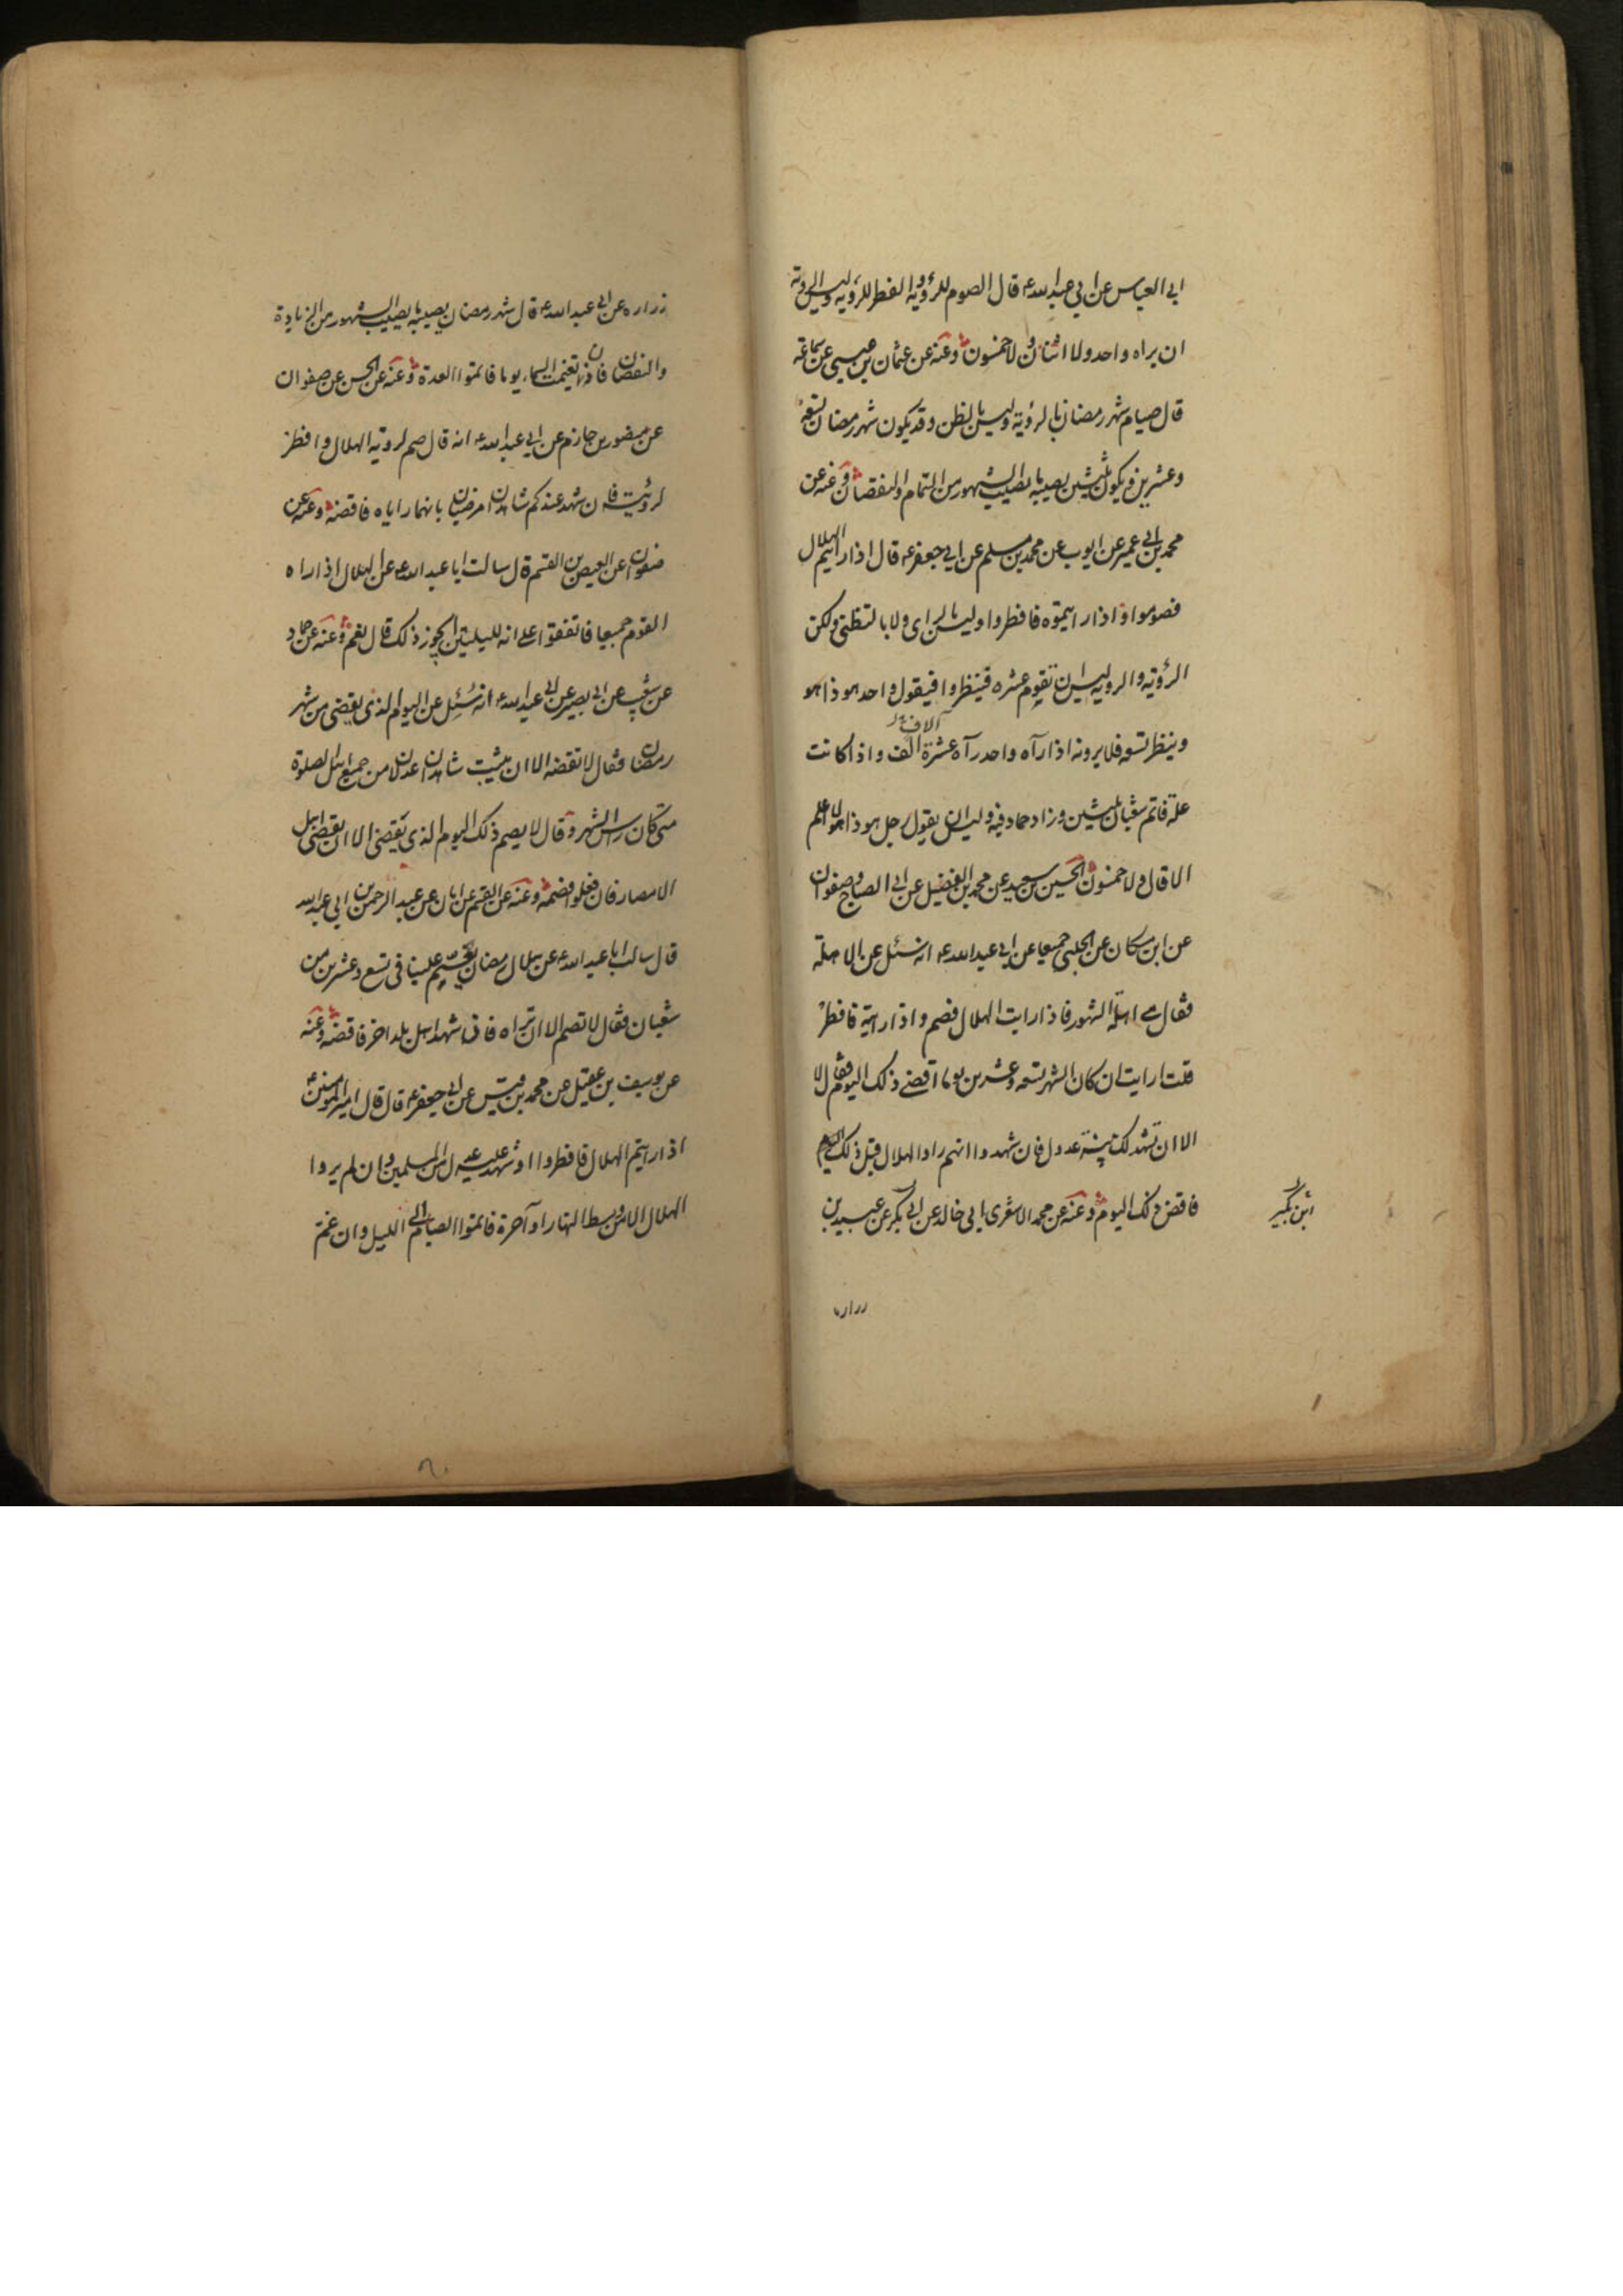 ابي العباس عن ابي عبد الله ع قال الصوم للرؤية والفطر للرؤية وليس الرؤية
ان يراه واحد ولا اثنان ولا خمسون وعنه عن عثمان بن عيسى عن سماعة
قال صيام شهر رمضان بالرؤية وليس بالظن وقد يكون شهر رمضان تسعة
وعشرين ويكون ثلثين يصيبه ما يصيب الشهور من التمام والنقصان وعنه عن
محمد بن ابي عمير عن ايوب عن محمد بن مسلم عن ابي جعفر ع قال اذا رايتم الهلال
فصوموا واذا رايتموه فافطروا وليس بالراى ولا بالتظنى ولكن
الرؤية والرؤية ليس ان تقوم عشره فينظروا فيقول واحد هو ذا هو
الاف
وينظر تسعه فلا يرونه اذا رآه واحد رآه عشرة الف واذا كانت
علة فاتم شعبان ثلثين وزاد حماد فيه وليس ان يقول رجل هو ذا هو لا اعلم
الا قال ولا خمسون الحسين بن سعيد عن محمد بن الفضيل عن ابي الصباح وصفوان
عن ابن مسكان عن الحلبى جميعا عن ابي عبد الله ع انه سئل عن الاهلة
فقال هي اهلة الشهور فاذا رايت الهلال فصم واذا رايته فافطر
قلت ارايت ان كان الشهر تسعه وعشرين يوما اقضى ذلك اليوم فقال لا
الا ان تشهد لك بينة عدول فان شهدوا انهم راوا الهلال قبل ذلك
فاقض ذلك اليوم وعنه عن محمد الاشعرى ابى خالد عن ابي بكر عن عبيد بن
ابن بكير
زراره
زراره عن ابي عبد الله ع قال شهر رمضان يصيبه ما يصيب الشهور من الزيادة
والنقصان فان تغيمت السماء يوما فاتموا العدة وعنه عن الحسن عن صفوان
عن منصور بن حازم عن ابي عبد الله ع انه قال صم لروية الهلال وافطر
لرويته فان شهد عندكم شاهدان مرضيان بانهما راياه فاقضه وعنه عن
صفوان عن العيص بن القسم قال سالت ابا عبد الله ع عن الهلال اذا راه
القوم جميعا فاتفقوا على انه لليلتين ايجوز ذلك قال نعم وعنه عن حماد
عن شعيب عن ابي بصير عن ابي عبد الله ع انه سُئِل عن اليوم الذى يقضى من شهر
رمضان فقال لا تقضه الا ان يثبت شاهدان عدلان من جميع اهل الصلوة
متى كان راس الشهر وقال لا يصم ذلك اليوم الذى يقضى الا ان يقضى اهل
الامصار فان فعلوا فصمه وعنه عن القسم عن ابان عن عبد الرحمن بن ابي عبد الله
قال سالت ابا عبد الله ع عن هلال رمضان يغم علينا فى تسع وعشرين من
شعبان فقال لا تصم الا ان تراه فان شهد اهل بلد اخر فاقضه وعنه
عن يوسف بن عقيل عن محمد بن قيس عن ابي جعفر ع قال قال امير المومنين ع
اذا رايتم الهلال فافطروا او شهد عليه عدل من المسلمين وان لم يروا
الهلال الا من وسط النهار او آخره فاتموا الصيام الى الليل وان غم